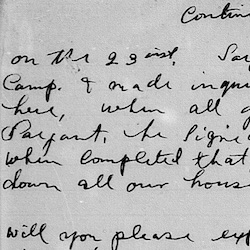 Contin
on the 22 inst. Sar
Camp. & made inqui
here, when all
Sargant, he signi
when completed that
down all our hous
will you please exp